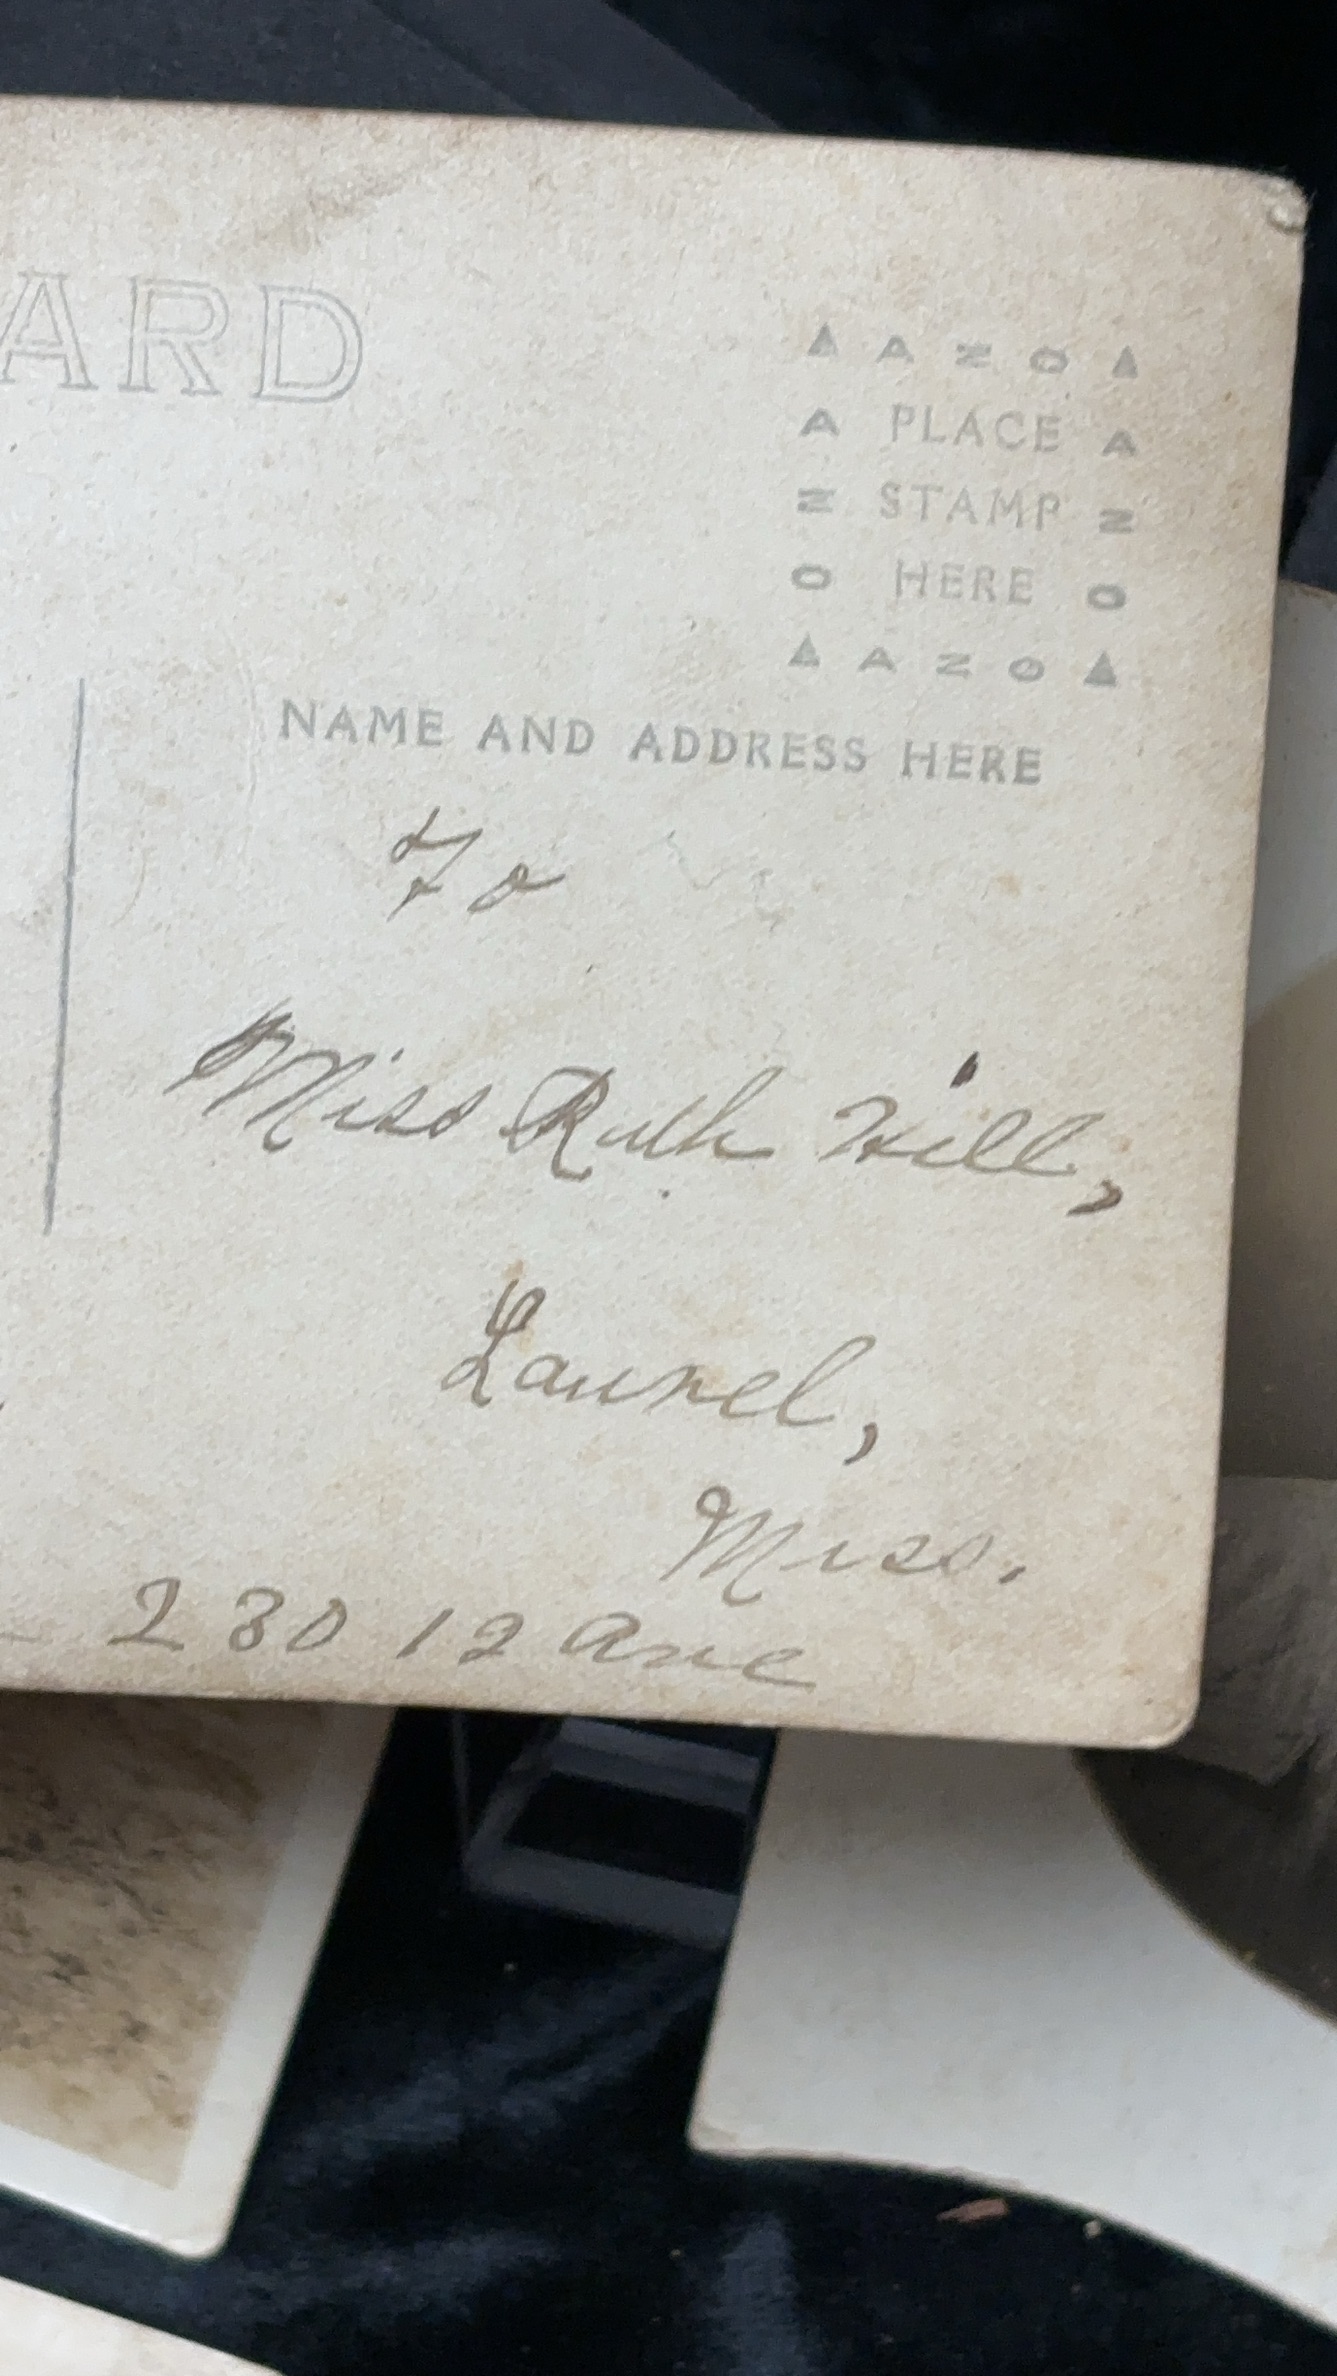 ARD
▲ A Z O ▲
A PLACE A
Z STAMP Z
O HERE O
▲ A Z O ▲
NAME AND ADDRESS HERE
To
Miss Ruth Hill,
Laurel,
Miss.
230 12 Ave